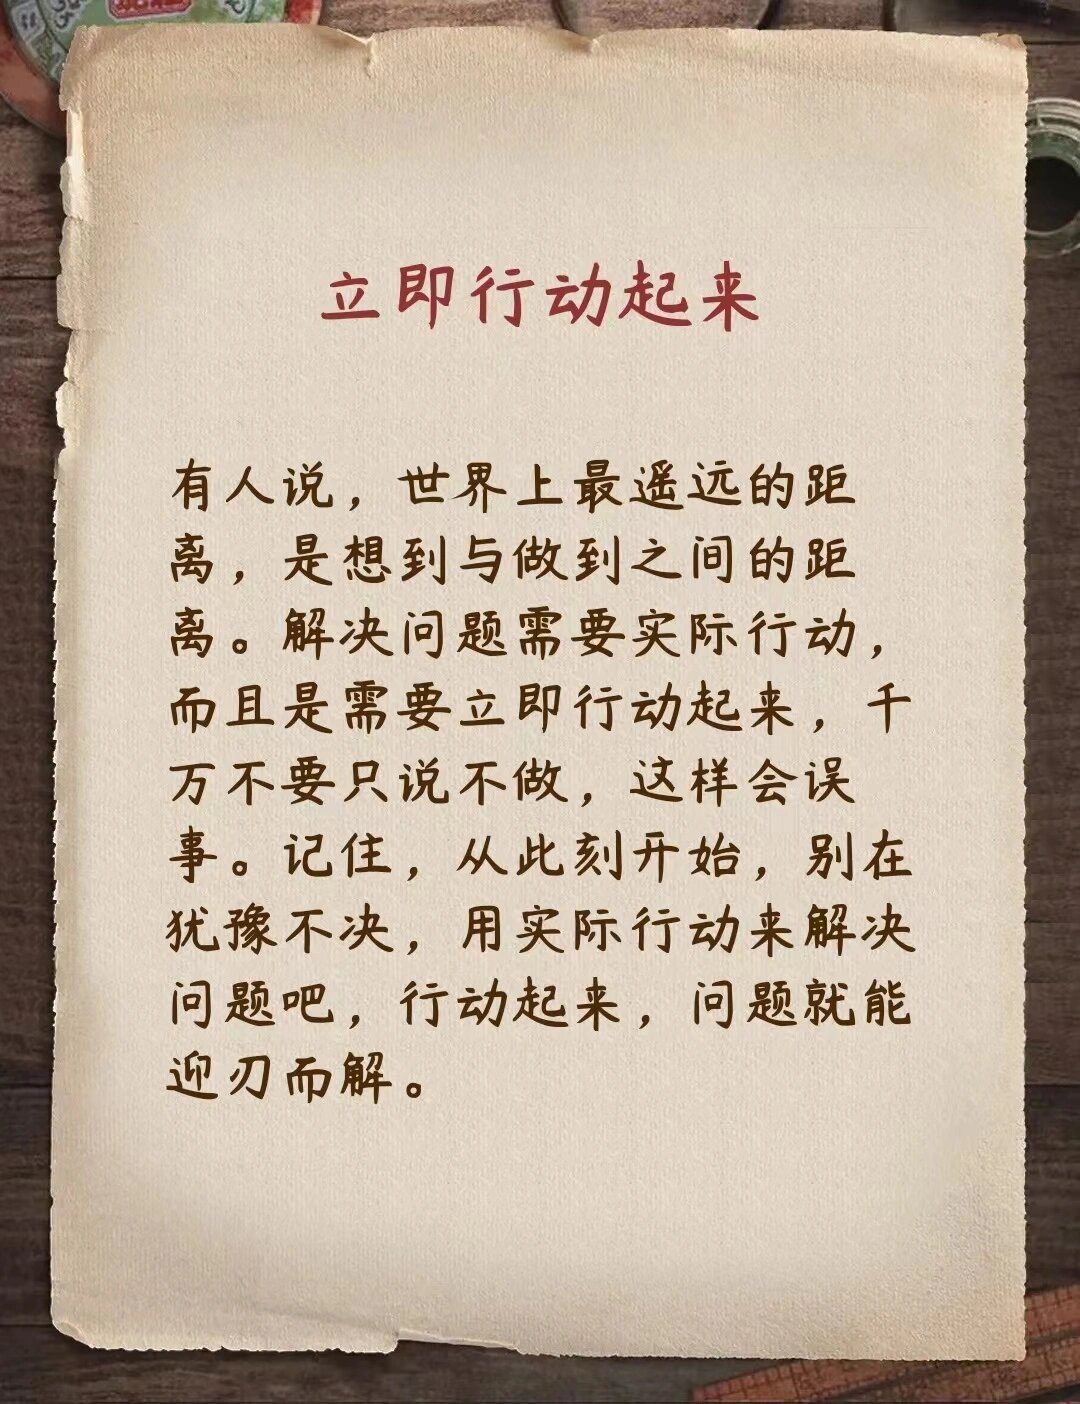 立即行动起来
有人说，世界上最遥远的距
离，是想到与做到之间的距
离。解决问题需要实际行动，
而且是需要立即行动起来，千
万不要只说不做，这样会误
事。记住，从此刻开始，别在
犹豫不决，用实际行动来解决
问题吧，行动起来，问题就能
迎刃而解。